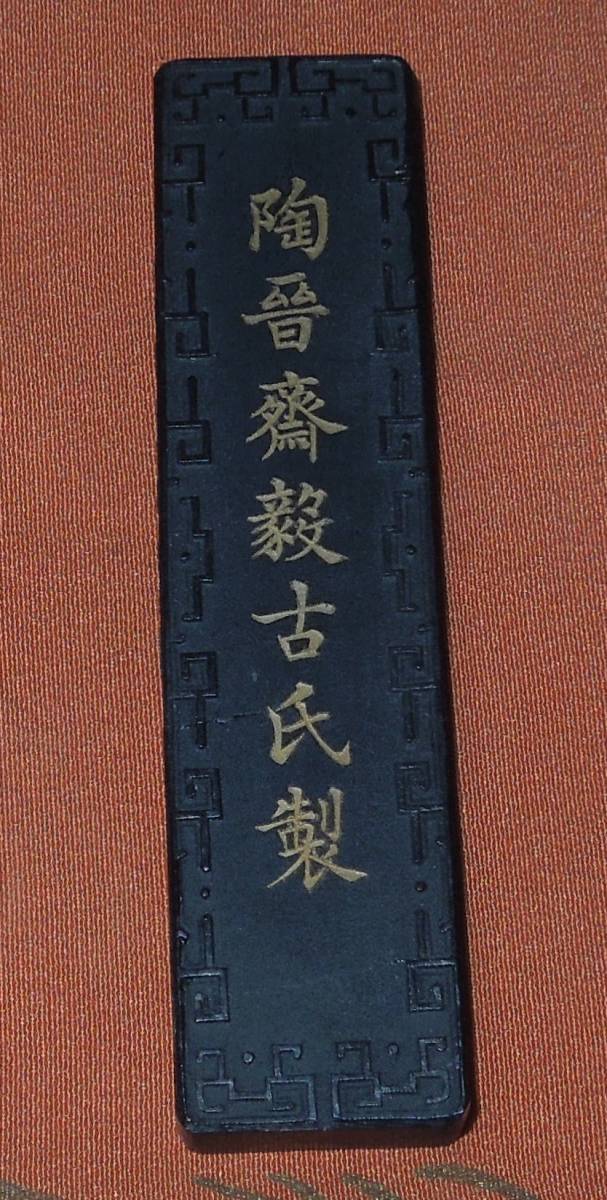 陶晉齋毅古氏製